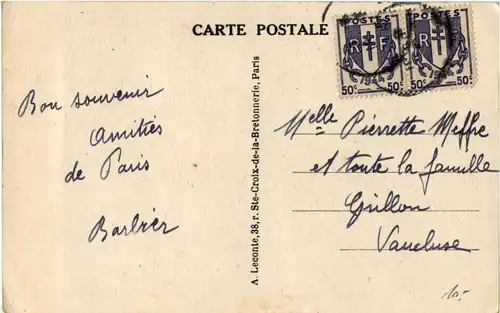 CARTE POSTALE
POSTES
RF
50c 50c
POSTES
RF
50c 50c
Bon souvenir
Amitiés
de Paris
Barbier
A. Leconte, 38, r. Ste-Croix-de-la-Bretonnerie, Paris
Melle Pierrette Meffre
et toute la famille
Grillon
Vaucluse